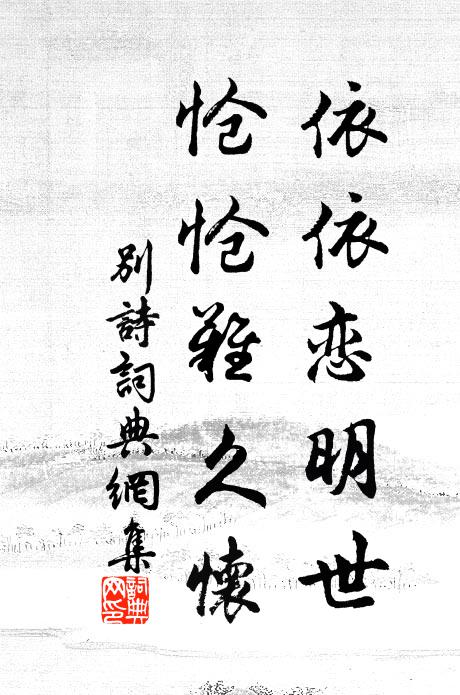 依依恋明世
怆怆難久懷
别詩詞典網集
詞典